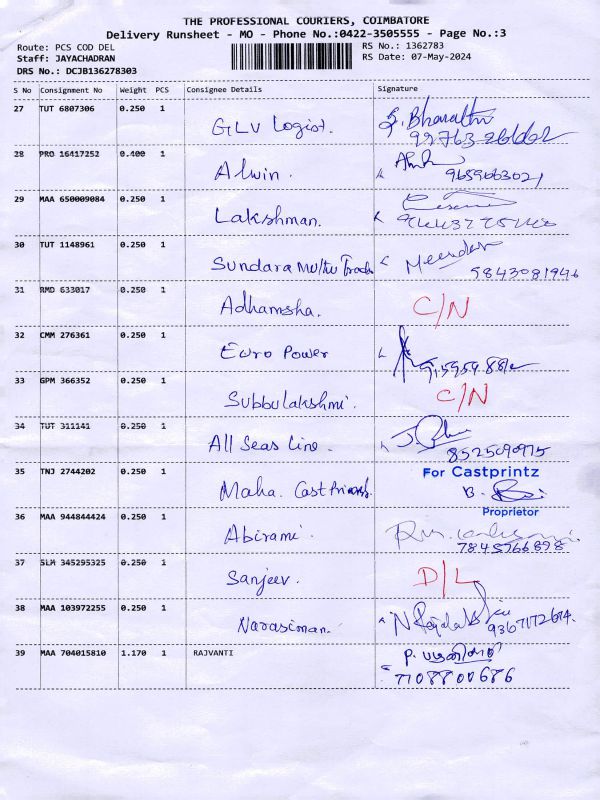 THE PROFESSIONAL COURIERS, COIMBATORE
Delivery Runsheet - MO - Phone No.:0422-3505555 - Page No.:3
Route: PCS COD DEL RS No.: 1362783
Staff: JAYACHADRAN RS Date: 07-May-2024
DRS No.: DCJB136278303
S No Consignment No Weight PCS Consignee Details Signature
27 TUT 6807306 0.250 1 GLV Logist. S. Bharathi
28 PRO 16417252 0.400 1 Alwin.
9659063021
29 MAA 650009084 0.250 1 Lakshman.
30 TUT 1148961 0.250 1 Sundara Muthu Trads
9843081946
31 RMD 633017 0.250 1 Adhamsha. C/N
32 CMM 276361 0.250 1 Euro Power
33 GPM 366352 0.250 1 Subbulakshmi. C/N
34 TUT 311141 0.250 1 All Seas Line.
8525090975
35 TNJ 2744202 0.250 1 Maha. Cast For Castprintz
B.
Proprietor
36 MAA 944844424 0.250 1 Abirami.
7845766898
37 SLM 345295325 0.250 1 Sanjeev. D/L
38 MAA 103972255 0.250 1 Narasiman.
9367172674.
39 MAA 704015810 1.170 1 RAJVANTI P.
7708800686